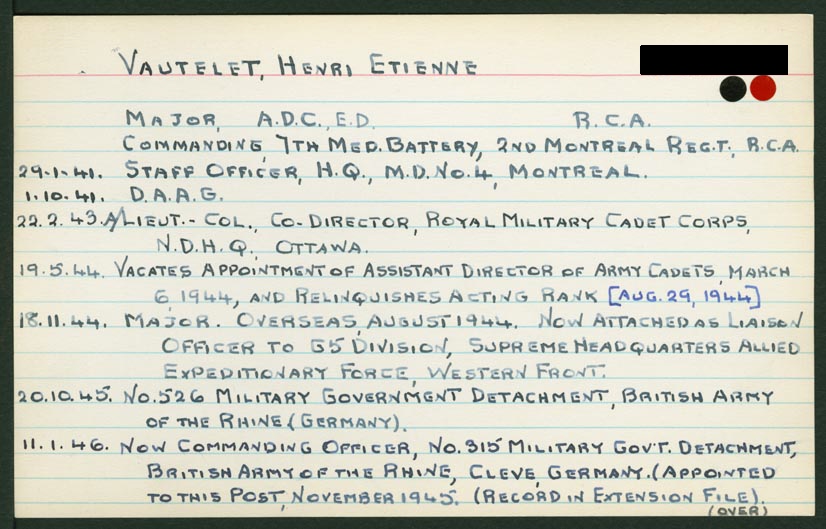 VAUTELET, HENRI ETIENNE
MAJOR, A.D.C., E.D. R.C.A.
COMMANDING 7TH MED. BATTERY, 2ND MONTREAL REGT., R.C.A.
29-1-41. STAFF OFFICER, H.Q., M.D. NO. 4, MONTREAL.
1.10.41. D.A.A.G.
22.2.43. A/LIEUT.-COL., CO-DIRECTOR, ROYAL MILITARY CADET CORPS,
N.D.H.Q., OTTAWA.
19.5.44. VACATES APPOINTMENT OF ASSISTANT DIRECTOR OF ARMY CADETS, MARCH
6, 1944, AND RELINQUISHES ACTING RANK [AUG. 29, 1944]
18.11.44. MAJOR. OVERSEAS, AUGUST 1944. NOW ATTACHED AS LIAISON
OFFICER TO G5 DIVISION, SUPREME HEADQUARTERS ALLIED
EXPEDITIONARY FORCE, WESTERN FRONT.
20.10.45. NO. 526 MILITARY GOVERNMENT DETACHMENT, BRITISH ARMY
OF THE RHINE (GERMANY).
11.1.46. NOW COMMANDING OFFICER, NO. 315 MILITARY GOV'T. DETACHMENT,
BRITISH ARMY OF THE RHINE, CLEVE, GERMANY. (APPOINTED
TO THIS POST, NOVEMBER 1945. (RECORD IN EXTENSION FILE).
(OVER)